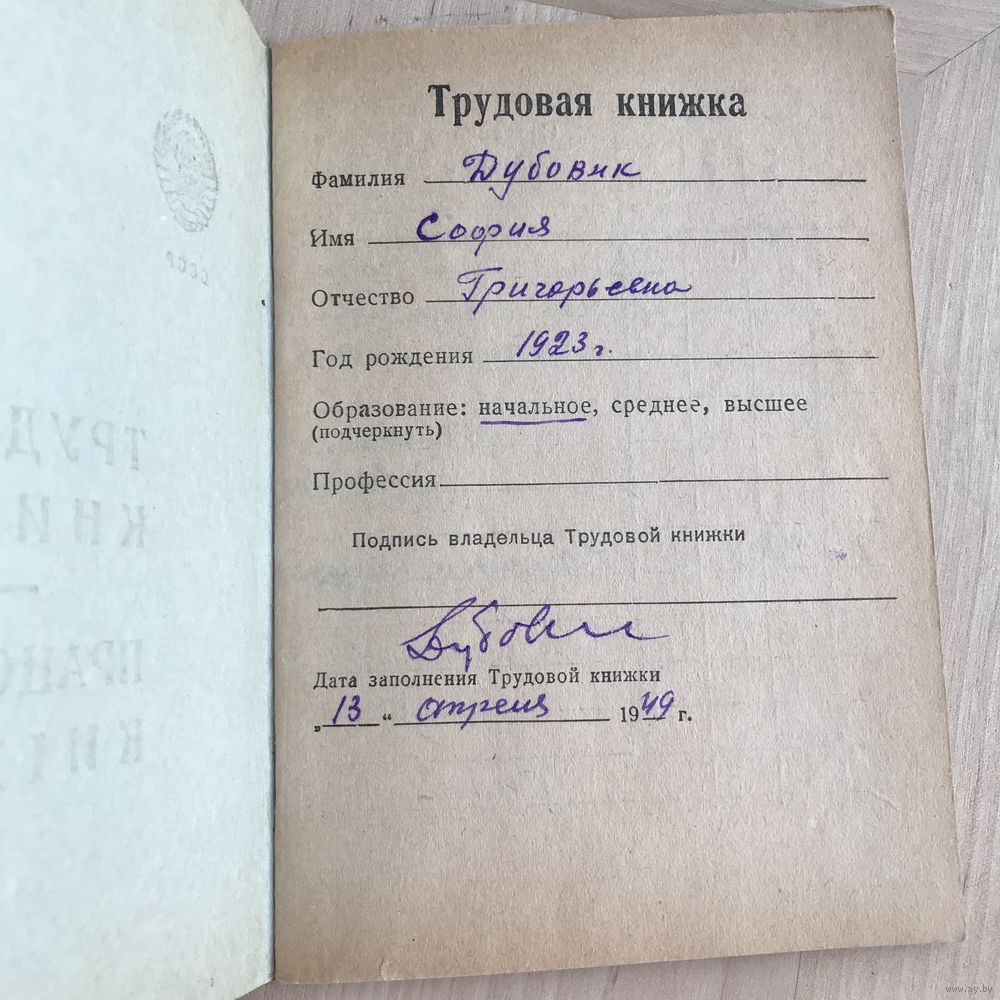 СССР
ТРУД
КНИ
ПРАЦО
КНІ
Трудовая книжка
Фамилия Дубовик
Имя София
Отчество Григорьевна
Год рождения 1923 г.
Образование: начальное, среднее, высшее
(подчеркнуть)
Профессия
Подпись владельца Трудовой книжки
Дубовик
Дата заполнения Трудовой книжки
„13“ апреля 1949 г.
www.ay.by